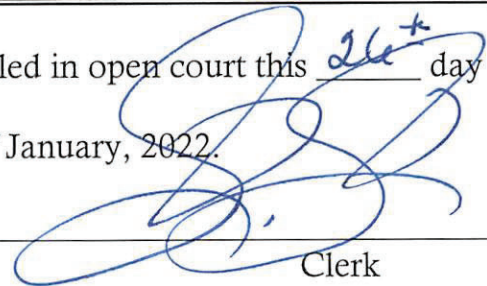 led in open court this 26th day
January, 2022.
Clerk